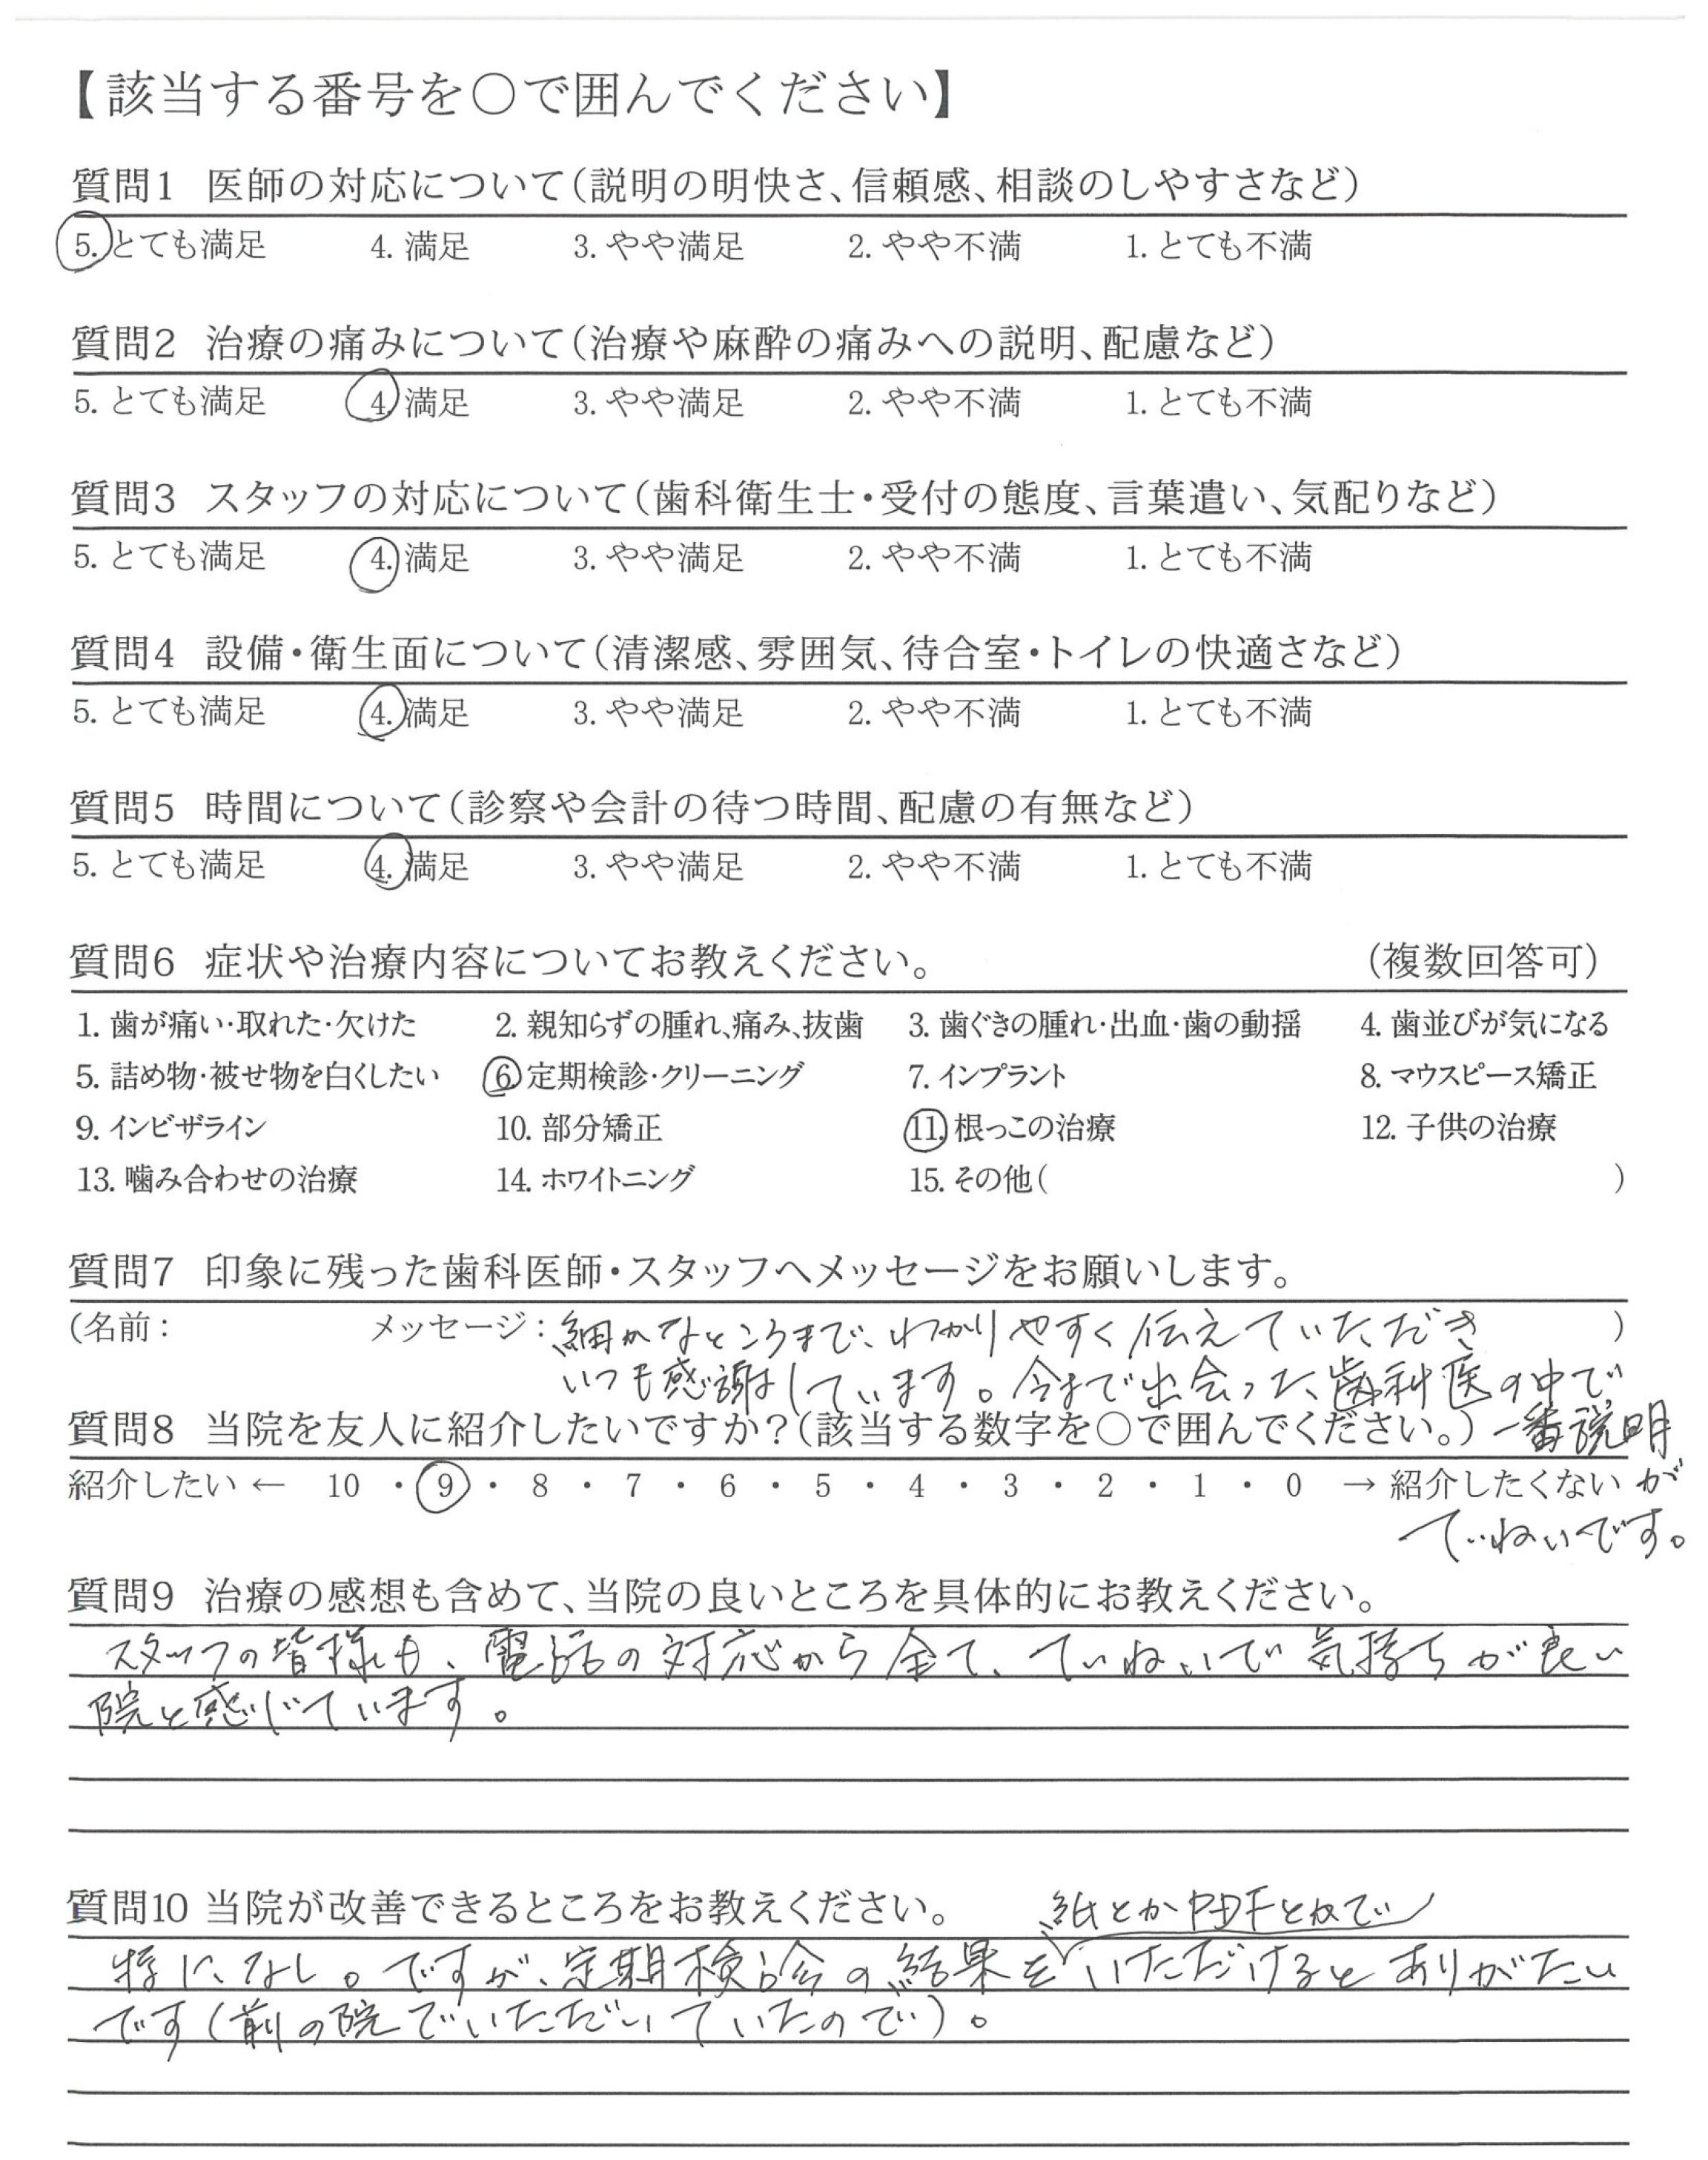 【該当する番号を○で囲んでください】
質問1 医師の対応について(説明の明快さ、信頼感、相談のしやすさなど)
5. とても満足 4. 満足 3. やや満足 2. やや不満 1. とても不満
質問2 治療の痛みについて(治療や麻酔の痛みへの説明、配慮など)
5. とても満足 4. 満足 3. やや満足 2. やや不満 1. とても不満
質問3 スタッフの対応について(歯科衛生士・受付の態度、言葉遣い、気配りなど)
5. とても満足 4. 満足 3. やや満足 2. やや不満 1. とても不満
質問4 設備・衛生面について(清潔感、雰囲気、待合室・トイレの快適さなど)
5. とても満足 4. 満足 3. やや満足 2. やや不満 1. とても不満
質問5 時間について(診察や会計の待つ時間、配慮の有無など)
5. とても満足 4. 満足 3. やや満足 2. やや不満 1. とても不満
質問6 症状や治療内容についてお教えください。 (複数回答可)
1. 歯が痛い・取れた・欠けた 2. 親知らずの腫れ、痛み、抜歯 3. 歯ぐきの腫れ・出血・歯の動揺 4. 歯並びが気になる
5. 詰め物・被せ物を白くしたい 6. 定期検診・クリーニング 7. インプラント 8. マウスピース矯正
9. インビザライン 10. 部分矯正 11. 根っこの治療 12. 子供の治療
13. 噛み合わせの治療 14. ホワイトニング 15. その他( )
質問7 印象に残った歯科医師・スタッフへメッセージをお願いします。
(名前: メッセージ: 細かなところまで、わかりやすく伝えていただき )
いつも感謝しています。今まで出会った歯科医の中で
質問8 当院を友人に紹介したいですか?(該当する数字を○で囲んでください。) 一番説明
紹介したい ← 10 ・ 9 ・ 8 ・ 7 ・ 6 ・ 5 ・ 4 ・ 3 ・ 2 ・ 1 ・ 0 → 紹介したくない が
ていねいです。
質問9 治療の感想も含めて、当院の良いところを具体的にお教えください。
スタッフの皆様も、電話の対応から全て、ていねいで気持ちが良い
院と感じています。
質問10 当院が改善できるところをお教えください。 紙とかPDFとかで
特になし。ですが、定期検診の結果をいただけるとありがたい
です(前の院でいただいていたので)。